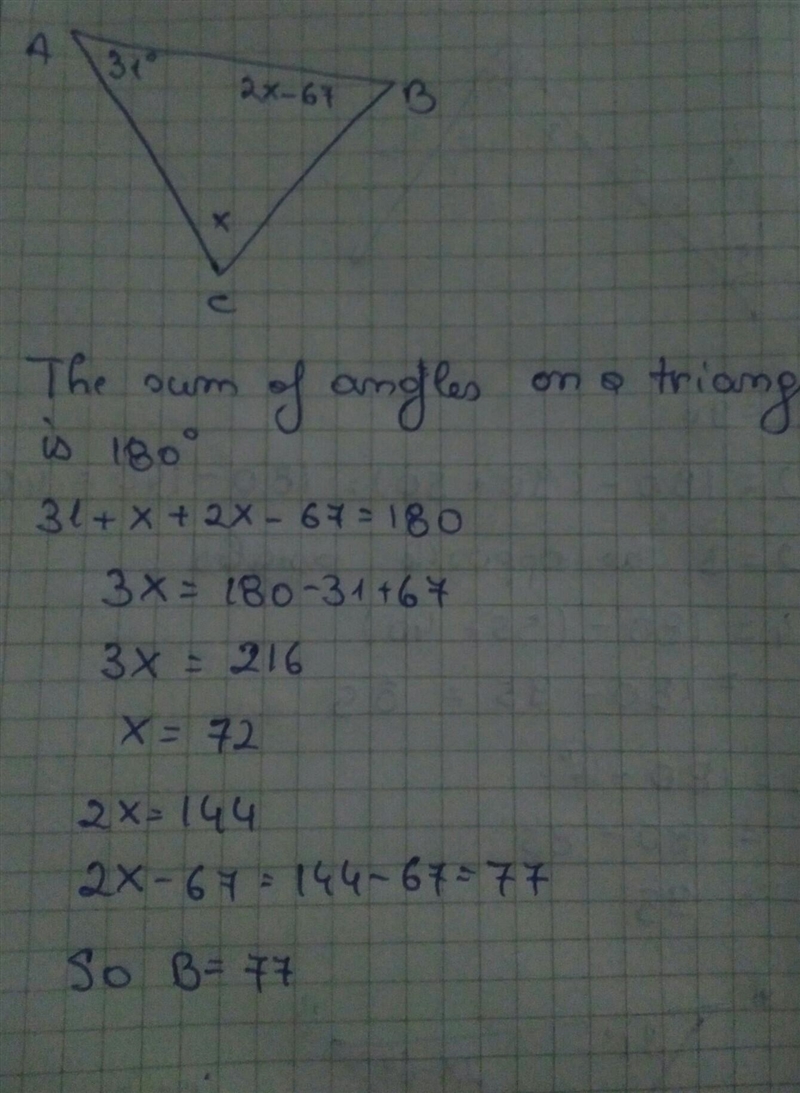 A
31°
2x-67
B
x
C
The sum of angles on a triang
is 180°
31 + x + 2x - 67 = 180
3x = 180 - 31 + 67
3x = 216
x = 72
2x = 144
2x - 67 = 144 - 67 = 77
So B = 77